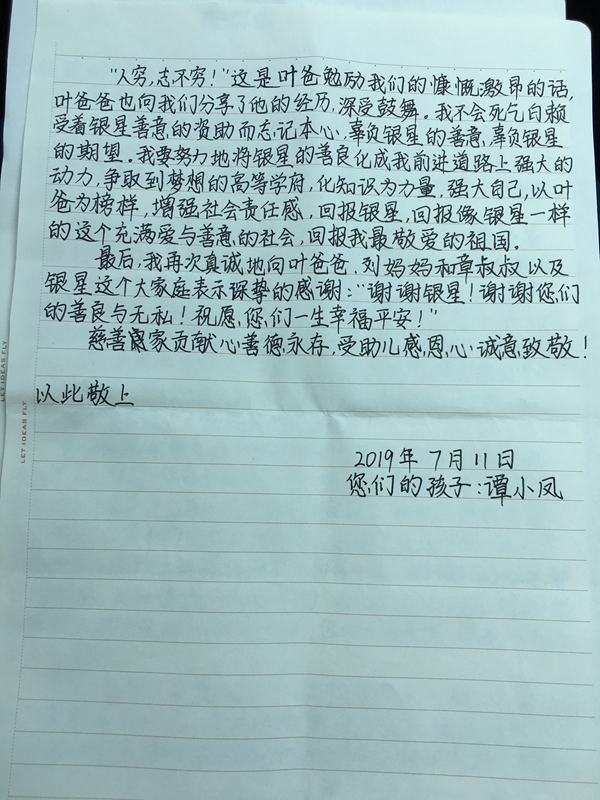 “人穷，志不穷！”这是叶爸勉励我们的慷慨激昂的话，
叶爸爸也向我们分享了他的经历，深受鼓舞。我不会死气白赖
受着银星善意的资助而忘记本心，辜负银星的善意，辜负银星
的期望。我要努力地将银星的善良化成我前进道路上强大的
动力，争取到梦想的高等学府，化知识为力量，强大自己，以叶
爸为榜样，增强社会责任感，回报银星，回报像银星一样
的这个充满爱与善意的社会，回报我最敬爱的祖国。
最后，我再次真诚地向叶爸爸、刘妈妈和章叔叔以及
银星这个大家庭表示深挚的感谢：“谢谢银星！谢谢您们
的善良与无私！祝愿，您们一生幸福平安！”
慈善家贡献心善德永存，受助儿感恩心诚意致敬！
以此敬上
2019年7月11日
您们的孩子：谭小凤
LET IDEAS FLY
LET IDEAS FLY